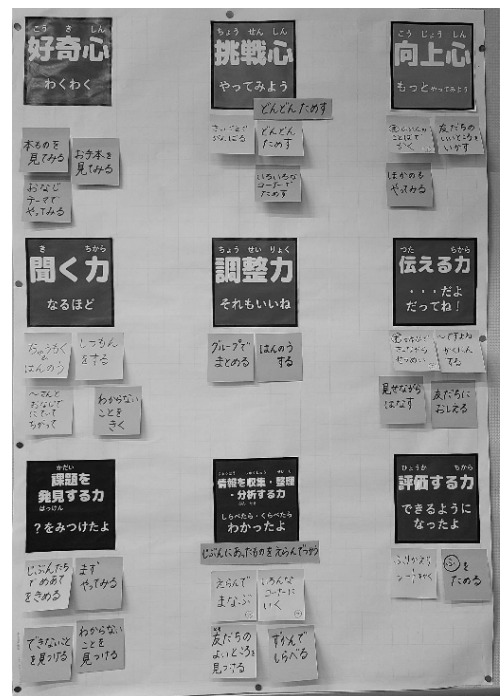 こうきしん
好奇心
わくわく
本ものを
見てみる
お手本を
見てみる
おなじ
テーマで
やってみる
ちょうせんしん
挑戦心
やってみよう
どんどんためす
どんどん
ためす
いろいろな
コーナーで
ためす
こうじょうしん
向上心
もっとやってみよう
ことばで
かく
友だちの
いいところを
いかす
ほかのも
やってみる
きちから
聞く力
なるほど
はんのう
しつもん
をする
～さんと
おなじで
にていて
ちがって
わからない
ことを
きく
ちょうせいりょく
調整力
それもいいね
グループで
まとめる
はんのう
する
つたちから
伝える力
・・・だよ
だってね!
～ですよね
かくにん
する
見せながら
はなす
友だちに
おしえる
かだい
課題を
発見する力
はっけん
?をみつけたよ
じぶんたち
でめあて
をきめる
まず
やってみる
できないこと
を見つける
わからない
ことを
見つける
情報を収集・整理
・分析する力
しらべたら・くらべたら
わかったよ
じぶんにあったものをえらんでつかう
えらんで
まなぶ
いろんな
コーナーに
いく
友だちの
よいところを
見つける
ずかんで
しらべる
ひょうかちから
評価する力
できるように
なったよ
ふりかえり
を
ためる